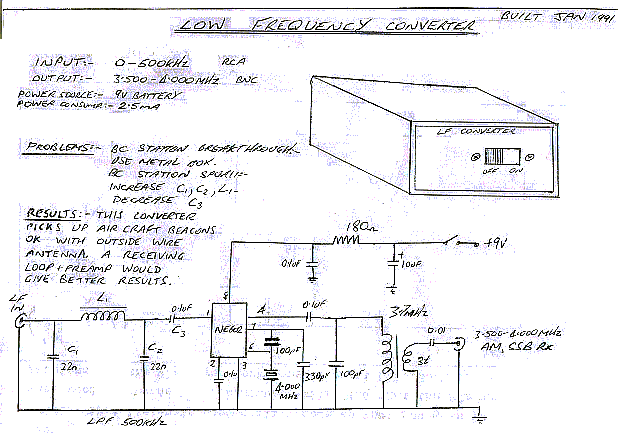 LOW FREQUENCY CONVERTER
BUILT JAN 1991
INPUT:- 0-500KHz RCA
OUTPUT:- 3.500-4.000MHz BNC
POWER SOURCE:- 9V BATTERY
POWER CONSUME:- 2.5mA
PROBLEMS:- BC STATION BREAKTHROUGH:-
USE METAL BOX.
BC STATION SPURII:-
INCREASE C1, C2, L1-
DECREASE C3
RESULTS:- THIS CONVERTER
PICKS UP AIR CRAFT BEACONS
OK WITH OUTSIDE WIRE
ANTENNA. A RECEIVING
LOOP + PREAMP WOULD
GIVE BETTER RESULTS.
LF CONVERTER
OFF ON
180Ω
+9V
0.1uF
+
10uF
LF
IN
L1
0.1uF
C3
1
8
NE602
4
7
6
2
3
0.1uF
3.7MHz
0.01
3.500-4.000MHz
AM, SSB RX
3t
C1
22n
C2
22n
0.1u
100pF
4.000
MHz
330pF
100pF
LPF 500KHz